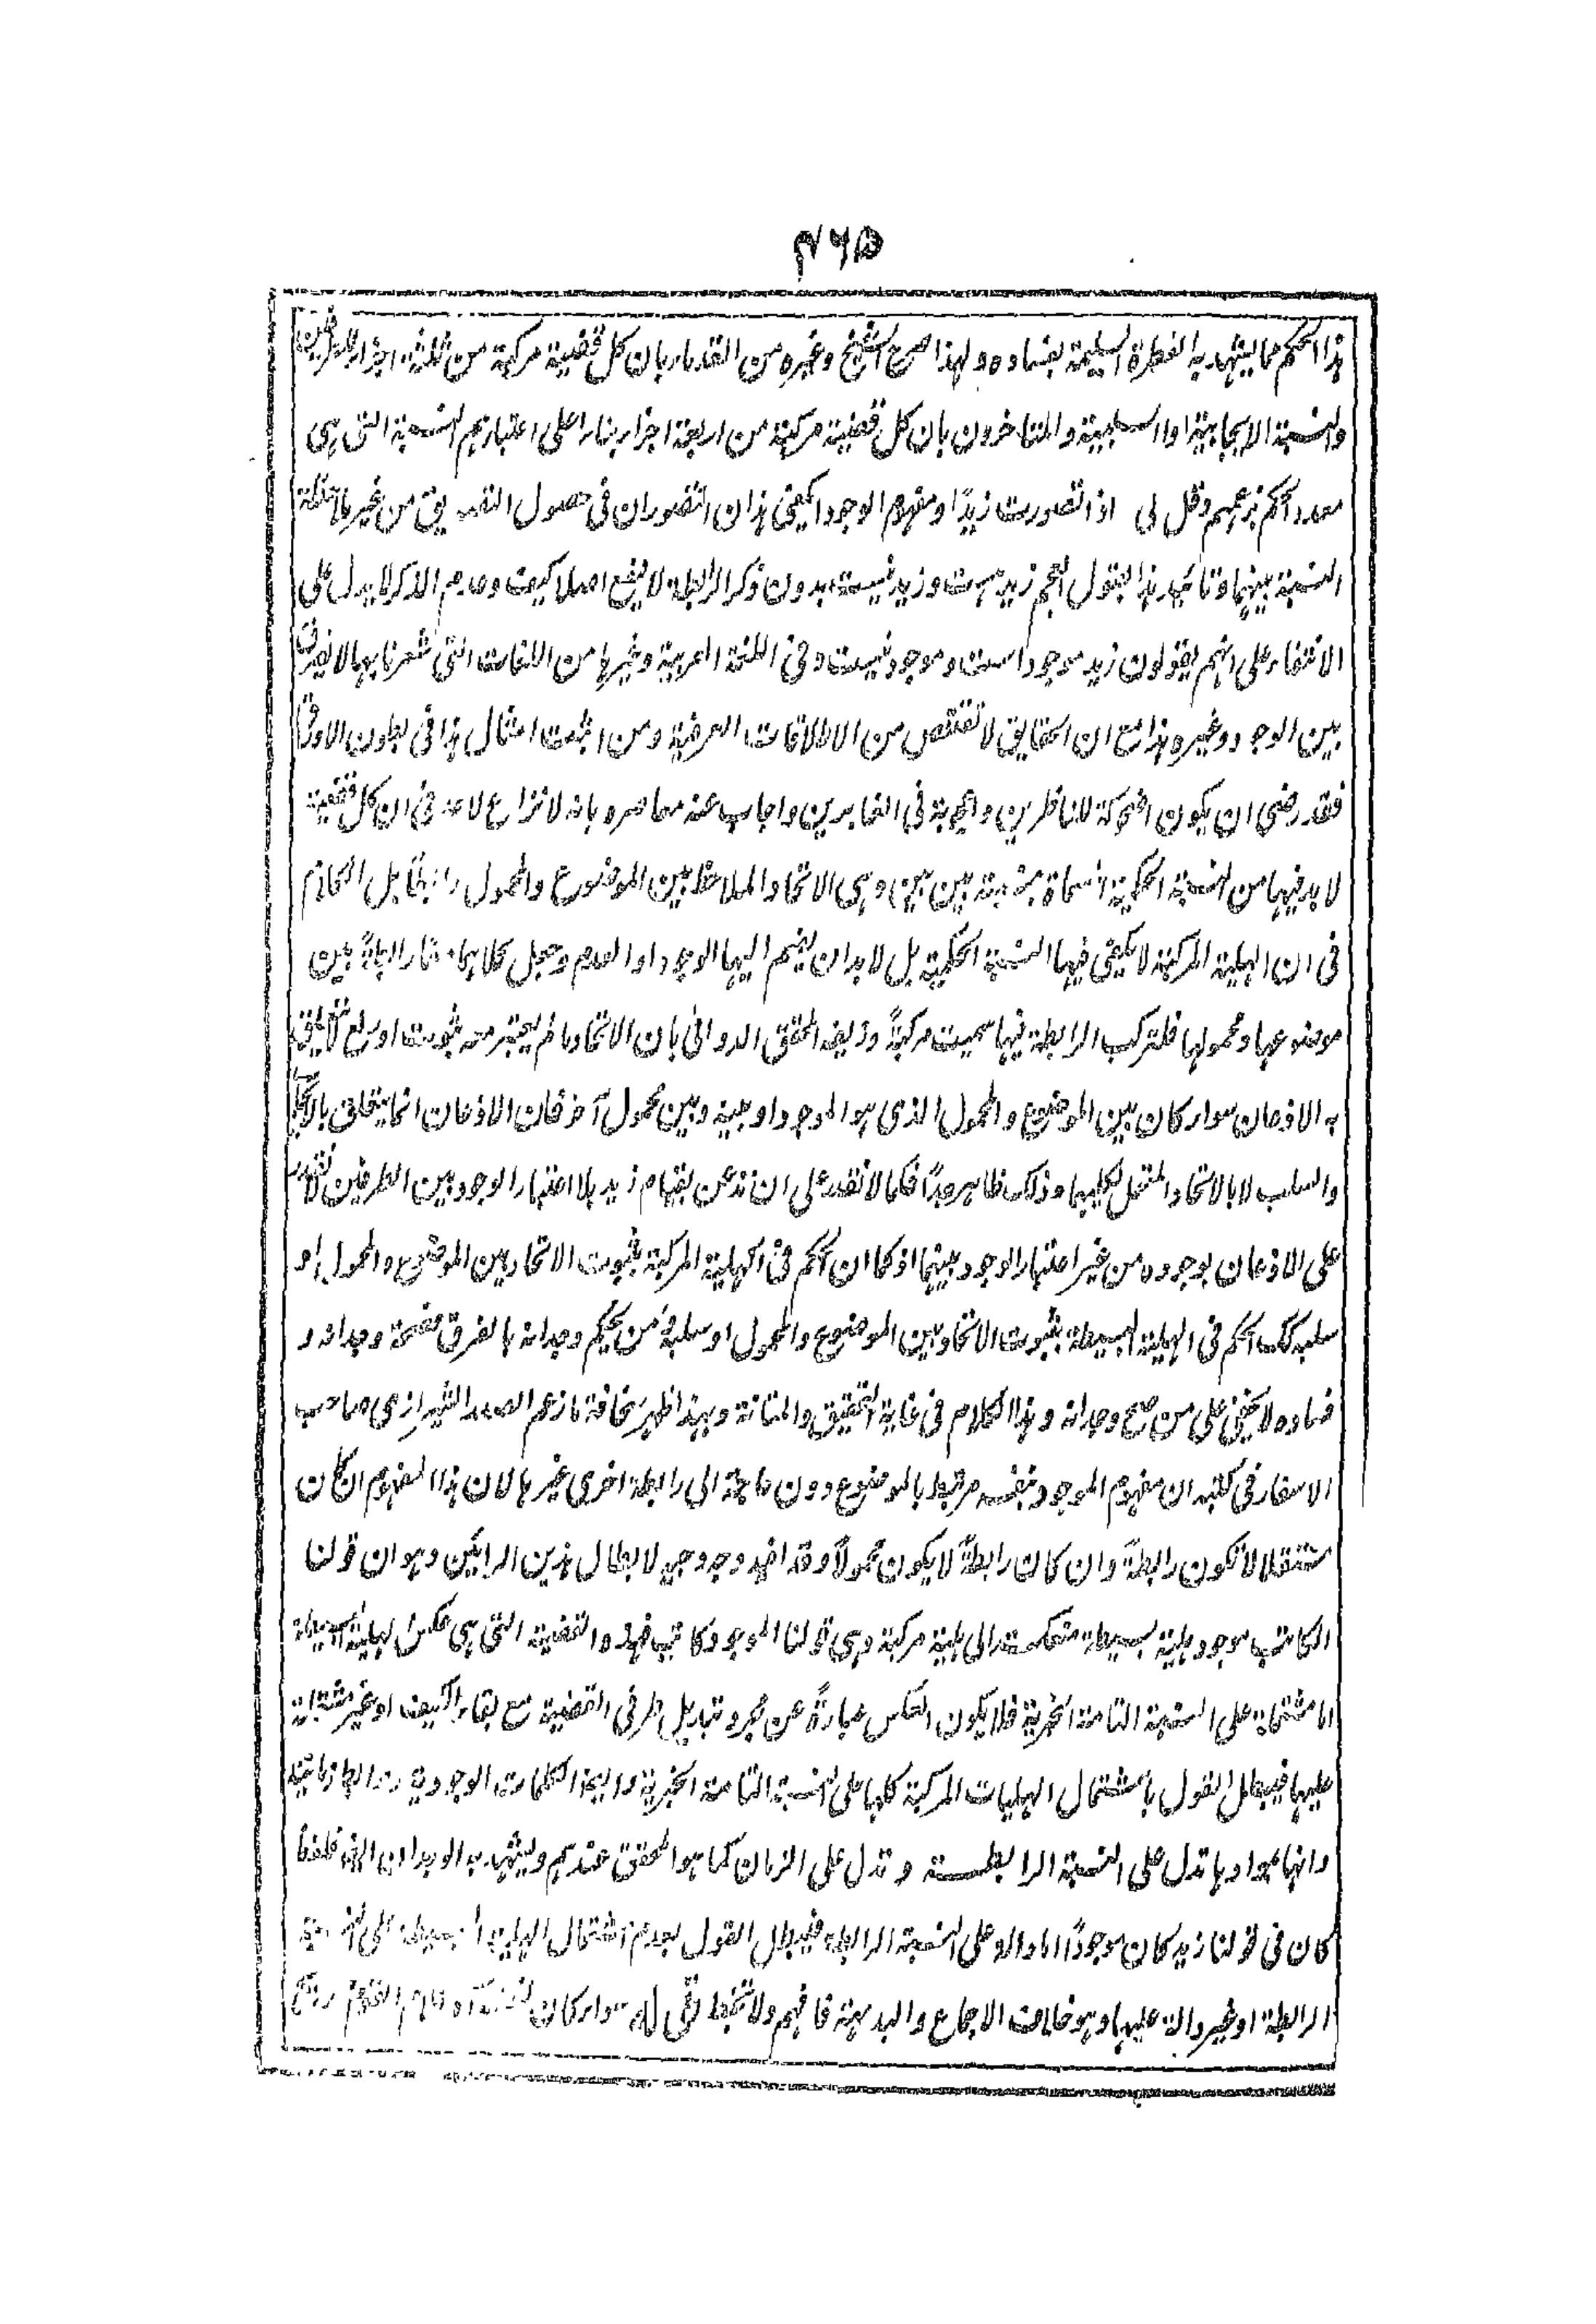 ۴۶۵
هذا الحكم مما يشهد به الفطرة السليمة بفساده ولهذا صرح الشيخ وغيره من القدماء بان كل قضية مركبة من ثلثة اجزاء الطرفين
والنسبة الايجابية او السلبية والمتاخرون بان كل قضية مركبة من اربعة اجزاء بناء على اعتبارهم النسبة التى هى
مورد الحكم بزعمهم وقل لى اذا تصورت زيدًا ومفهوم الوجود ايكفى هذان التصوران فى حصول التصديق من غير ملاحظة
النسبة بينهما وتائيد هذا بقول العجم زيد هست وزيد نيست بدون ذكر الرابطة لا ينفع اصلا كيف وعدم الذكر لا يدل على
الانتفاء على انهم يقولون زيد موجود است وموجود نيست وفى اللغة العربية وغيرها من اللغات التى شعرنا بها لا يفرق
بين الوجود وغيره هذا مع ان الحقايق لا تقتنص من الاطلاقات العرفية ومن اثبت امثال هذا فى بطون الاوراق
فقد رضى ان يكون اضحوكة للناظرين واعجوبة فى الغابرين واجاب عنه معاصره بانه لا نزاع لاحد فى ان كل قضية
لا بد فيها من النسبة الحكمية المسماة بنسبة بين بين وهى الاتحاد الملاحظ بين الموضوع والمحمول انما الكلام
فى ان الهلية المركبة لا يكفى فيها النسبة الحكمية بل لا بد ان ينضم اليها الوجود او العدم وجعل كلاهما رابطةً بين
موضوعها ومحمولها فلتركب الرابطة فيها سميت مركبةً وزيفه المحقق الدوانى بان الاتحاد ما لم يعتبر معه ثبوت او رفع لا يتعلق
به الاذعان سواء كان بين الموضوع والمحمول الذى هو الموجود او بينه وبين محمول آخر فان الاذعان انما يتعلق بالايجاب
والسلب لا بالاتحاد المحتمل لكليهما وذلك ظاهر جدًا فكما لا نقدر على ان نذعن بقيام زيد بلا اعتبار الوجود بين الطرفين لا نقدر
على الاذعان بوجوده من غير اعتبار الوجود بينهما اذ كما ان الحكم فى الهلية المركبة بثبوت الاتحاد بين الموضوع والمحمول او
سلبه كك الحكم فى الهلية البسيطة بثبوت الاتحاد بين الموضوع والمحمول او سلبه فمن يحكم وجدانه بالفرق فصحة وجدانه و
فساده لا يخفى على من صح وجدانه وهذا الكلام فى غاية التحقيق والمتانة وبهذا ظهر سخافة ما زعم الصدر الشيرازى صاحب
الاسفار فى كتبه ان مفهوم الموجود بنفسه مرتبط بالموضوع دون حاجة الى رابطة اخرى غيرها لان هذا المفهوم ان كان
مستقلا لا تكون رابطةً وان كان رابطةً لا يكون محمولاً وقد اخذ وجه وجيه لابطال هذين الرايين وهو ان قولنا
الكاتب موجود هلية بسيطة منعكسة الى هلية مركبة وهى قولنا الموجود كاتب فهذه القضية التى هى عكس الهلية البسيطة
اما مشتملة على النسبة التامة الخبرية فلا يكون العكس عبارةً عن مجرد تبديل طرفى القضية مع بقاء الكيف او غير مشتملة
عليها فيبطل القول باشتمال الهليات المركبة كلها على النسبة التامة الخبرية وايضا الكلمات الوجودية روابط زمانية
وانها بموادها تدل على النسبة الرابطة وتدل على الزمان كما هو المحقق عندهم ويشهد به الوجدان ايضا فلفظ
كان فى قولنا زيد كان موجودًا اما دالة على النسبة الرابطة فيبطل القول بعدم اشتمال الهلية البسيطة على النسبة
الرابطة او غير دالة عليها وهو خلاف الاجماع والبديهة فافهم ولا تخبط قوله سواء كان